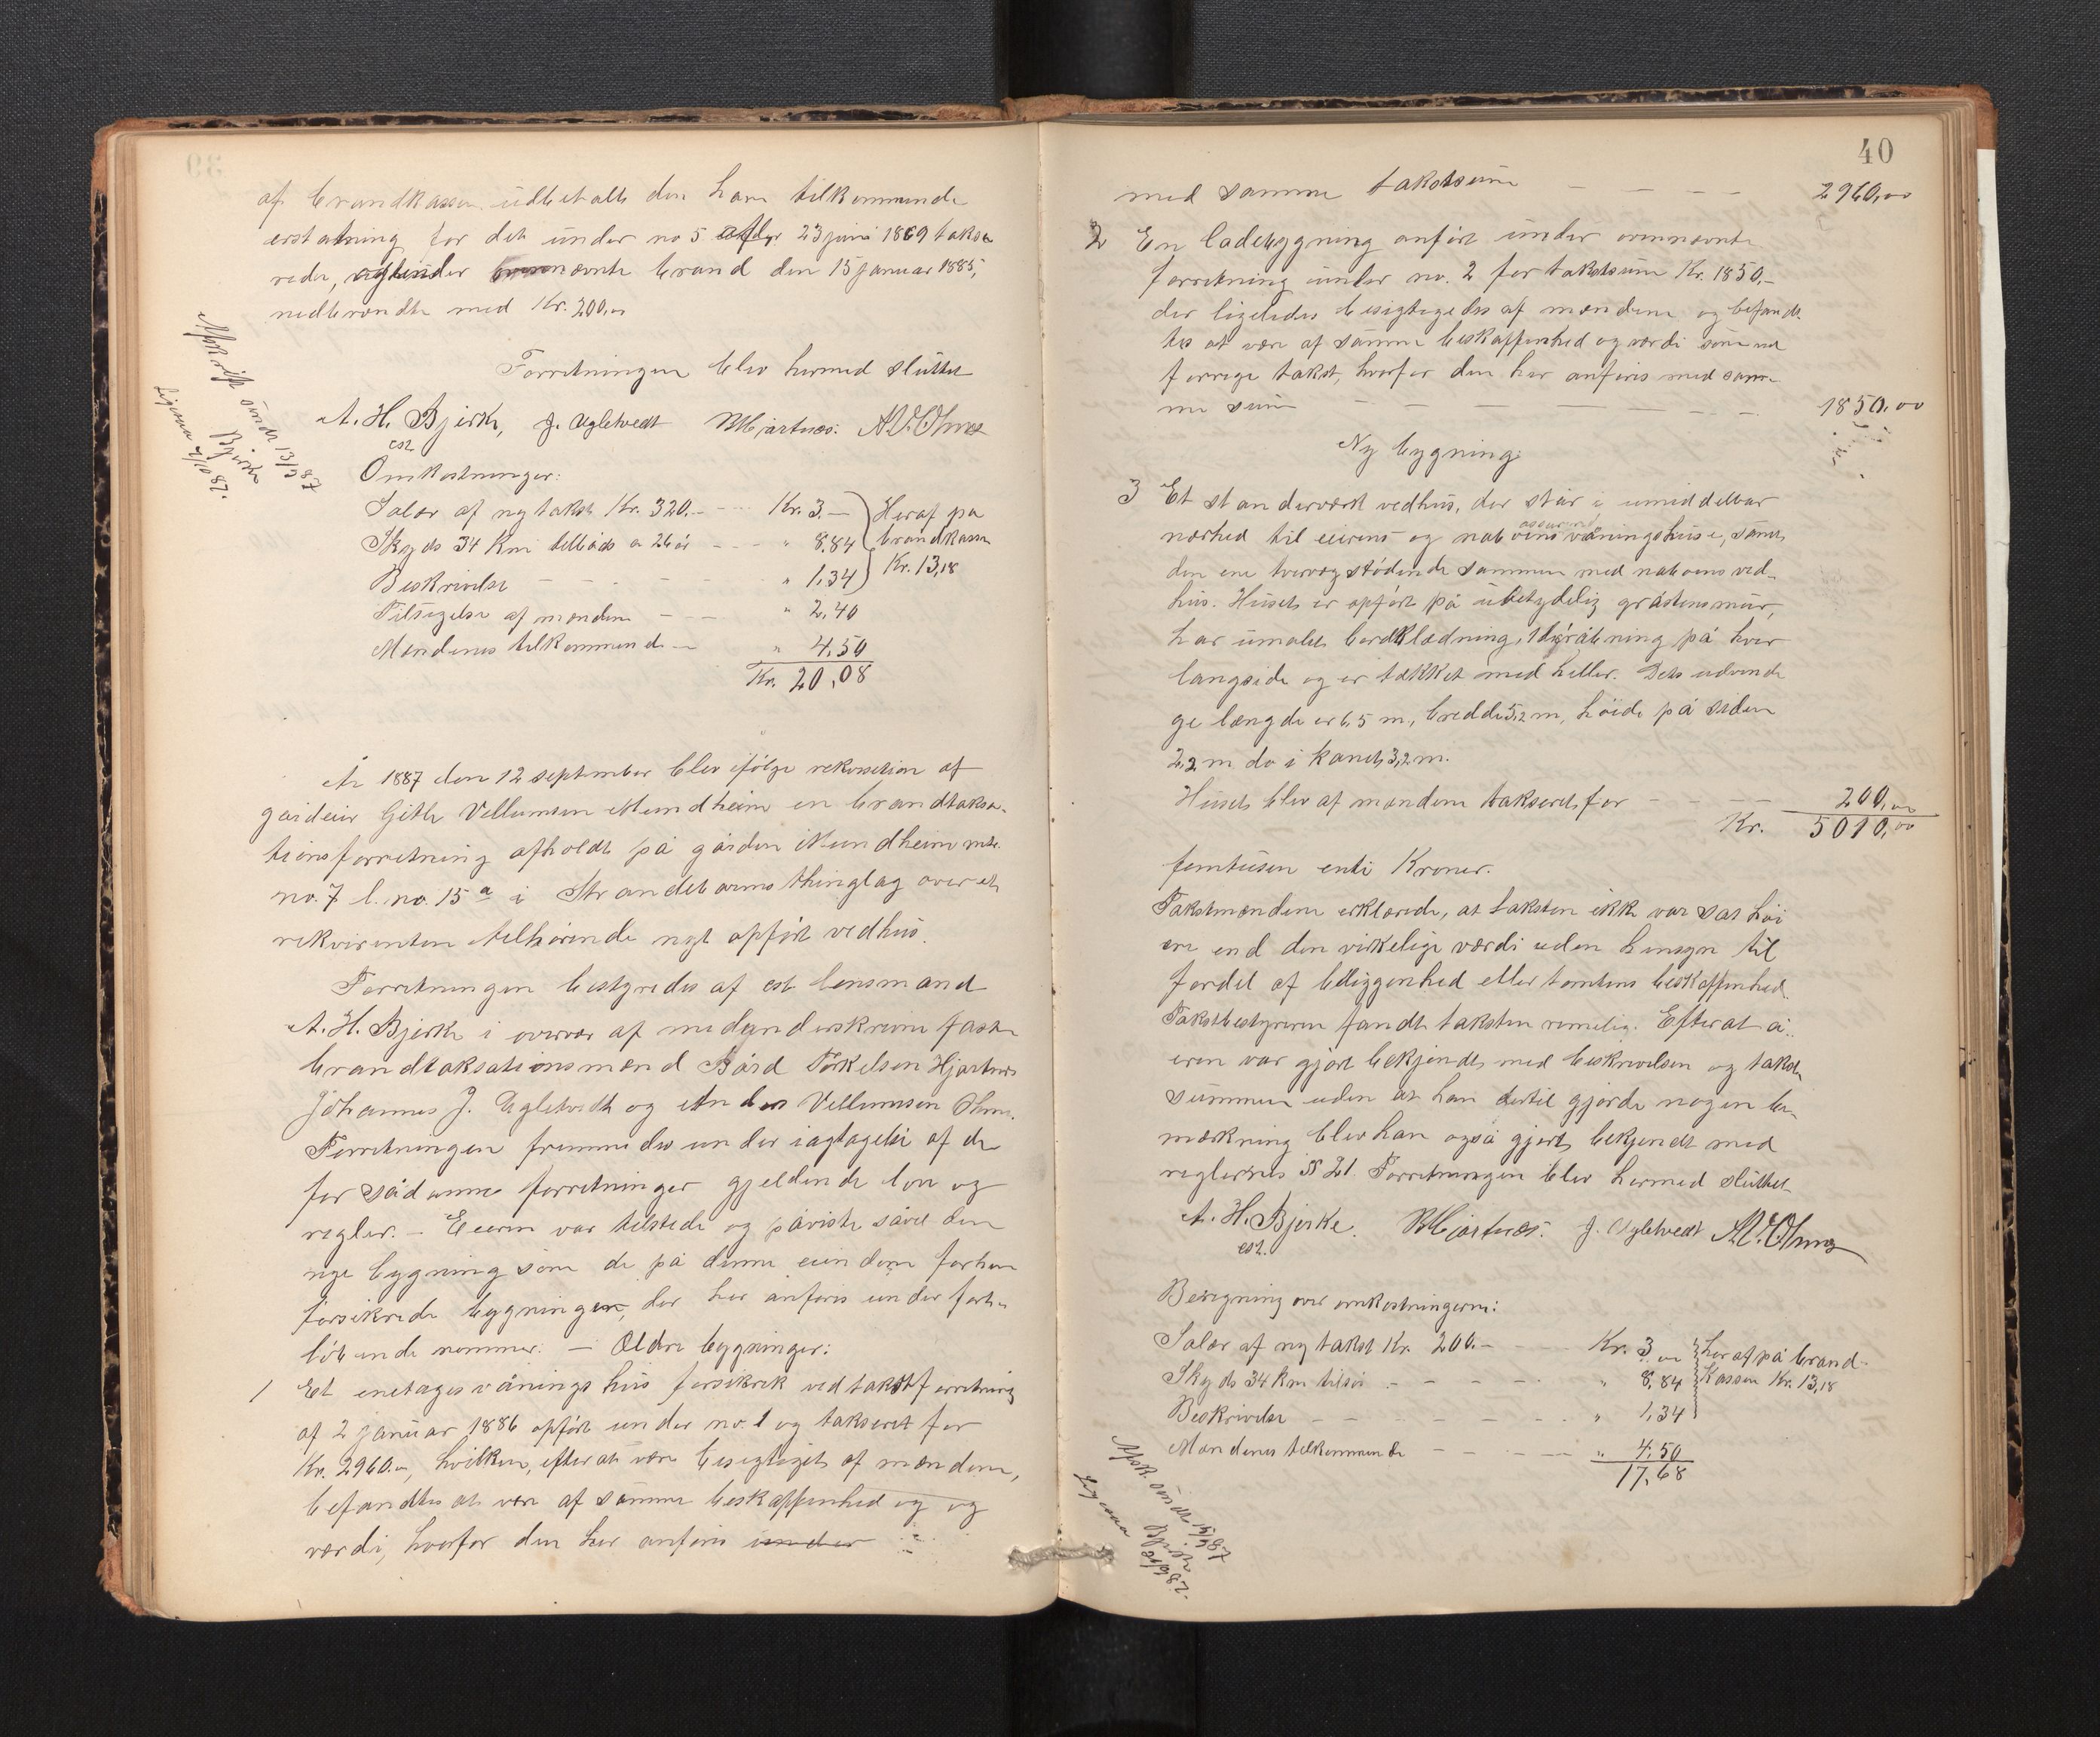 af brandkassen udbetalt den ham tilkommende
erstatning for det under no 5 23 juni 1869 takse
rede, under brand den 15 januar 1885,
nedbrændte med Kr. 200,00
Forretningen blev hermed sluttet
A. H. Bjerke, J. Ugletvedt BHjartnæs. AV.Ølmes
est.
Afskrift sendt 13/9 87
Bjerke
Ligesaa 2/10 87.
Omkostninger:
Salær af ny takst Kr. 320.— Kr. 3.— Heraf på
Skyds 34 km tilbåds a 26 ør " 8,84 brandkassen
Beskrivelse " 1,34 Kr. 13,18
Tilsigelse af mændene " 2,40
Mændenes tilkommende " 4,50
Kr. 20,08
År 1887 den 12 september blev ifølge rekvisition af
gårdeier Githe Vellumsen Mundheim en brandtaksa-
tionsforretning afholdt på gården Mundheim mtr.
no. 7 l. no. 15 a i Strandebarms thinglag over et
rekvirenten tilhørende nyt opført vedhus.
Forretningen bestyredes af cst. lensmand
A. H. Bjerke i overvær af medunderskrevne faste
brandtaksationsmænd Bård Torkelsen Hjartnæs
Johannes J. Ugletvedt og Anders Vellumsen Ølmes.
Forretningen fremmedes under iagtagelse af de
for sådanne forretninger gjeldende love og
regler. — Eieren var tilstede og påviste såvel den
nye bygning som de på denne eiendom forhen
forsikrede bygninger, der her anføres under forth-
løbende nommer. — Ældre bygninger:
1 Et enetages våningshus forsikret ved takstforretning
af 2 januar 1886 opført under no. 1 og takseret for
Kr. 2960.00, hvilken, efter at være besigtiget af mændene,
befandtes at være af samme beskaffenhed og og
værdi, hvorfor den her anføres under
40
med samme takstsum 2960,00
2 En ladebygning anført under ovennævnte
forretning under no. 2 for takstsum Kr. 1850,-
der ligeledes besigtigedes af mændene og befand-
tes at være af samme beskaffenhed og værdi som ved
forrige takst, hvorfor den her anføres med sam-
me sum 1850,00
Ny bygning:
3 Et standerværk vedhus, der står i umiddelbar
nærhed til eierens og naboens våningshuse, samt
den ene tvervæg stødende sammen med naboens ved-
hus. Huset er opført på ubetydelig gråstensmur,
har umalet bordklædning, 1 døråbning på hver
langside og er tækket med heller. Dets udvendi
ge længde er 6,5 m, bredde 5,2 m, høide på siden
2,2 m do i kanet 3,2 m.
Huset blev af mændene takseret for 200,00
Kr. 5010,00
femtusen enti Kroner.
Takstmændene erklærede, at taksten ikke var sat høi
ere end den virkelige værdi uden hensyn til
fordel af beliggenhed eller tomtens beskaffenhed.
Takstbestyreren fandt taksten rimelig. Efter at ei-
eren var gjort bekjendt med beskrivelsen og takst
summen uden at han dertil gjorde nogen be-
mærkning blev han også gjort bekjendt med
reglernes § 21. Forretningen blev hermed sluttet
A. H. Bjerke. BHjartnæs. J. Ugletvedt AV.Ølmes
est.
Beregning over omkostningerne:
Salær af ny takst Kr. 200.— Kr. 3,00 heraf på brand-
Skyds 34 km tilsøs " 8,84 kassen Kr. 13,18
Beskrivelse " 1,34
Mændenes tilkommende " 4,50
17,68
Afsk. sendt 15/9 87
Bjerke
Ligesaa